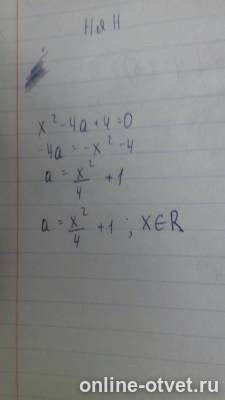 x² - 4a + 4 = 0
-4a = -x² - 4
a = x²/4 + 1
a = x²/4 + 1 ; x∈R
online-otvet.ru